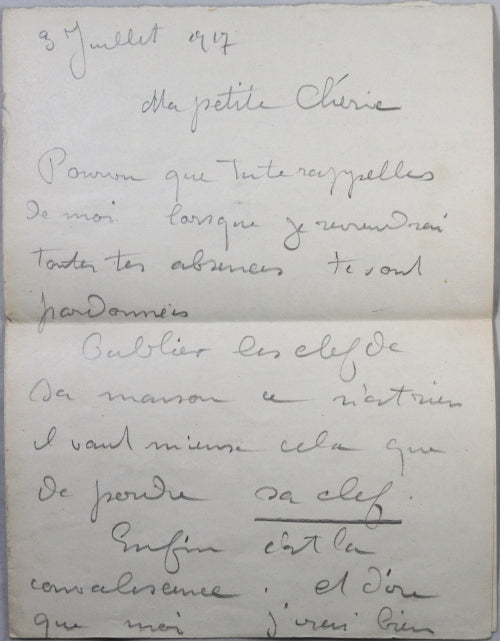 3 Juillet 1917
Ma petite Chérie
Pourvu que tu te rappelles
de moi lorsque je reviendrai
toutes tes absences te sont
pardonnées
Oublier les clef de
sa maison ce n'est rien
il vaut mieux cela que
de perdre sa clef.
Enfin c'est la
convalescence. et dire
que moi j'irai bien